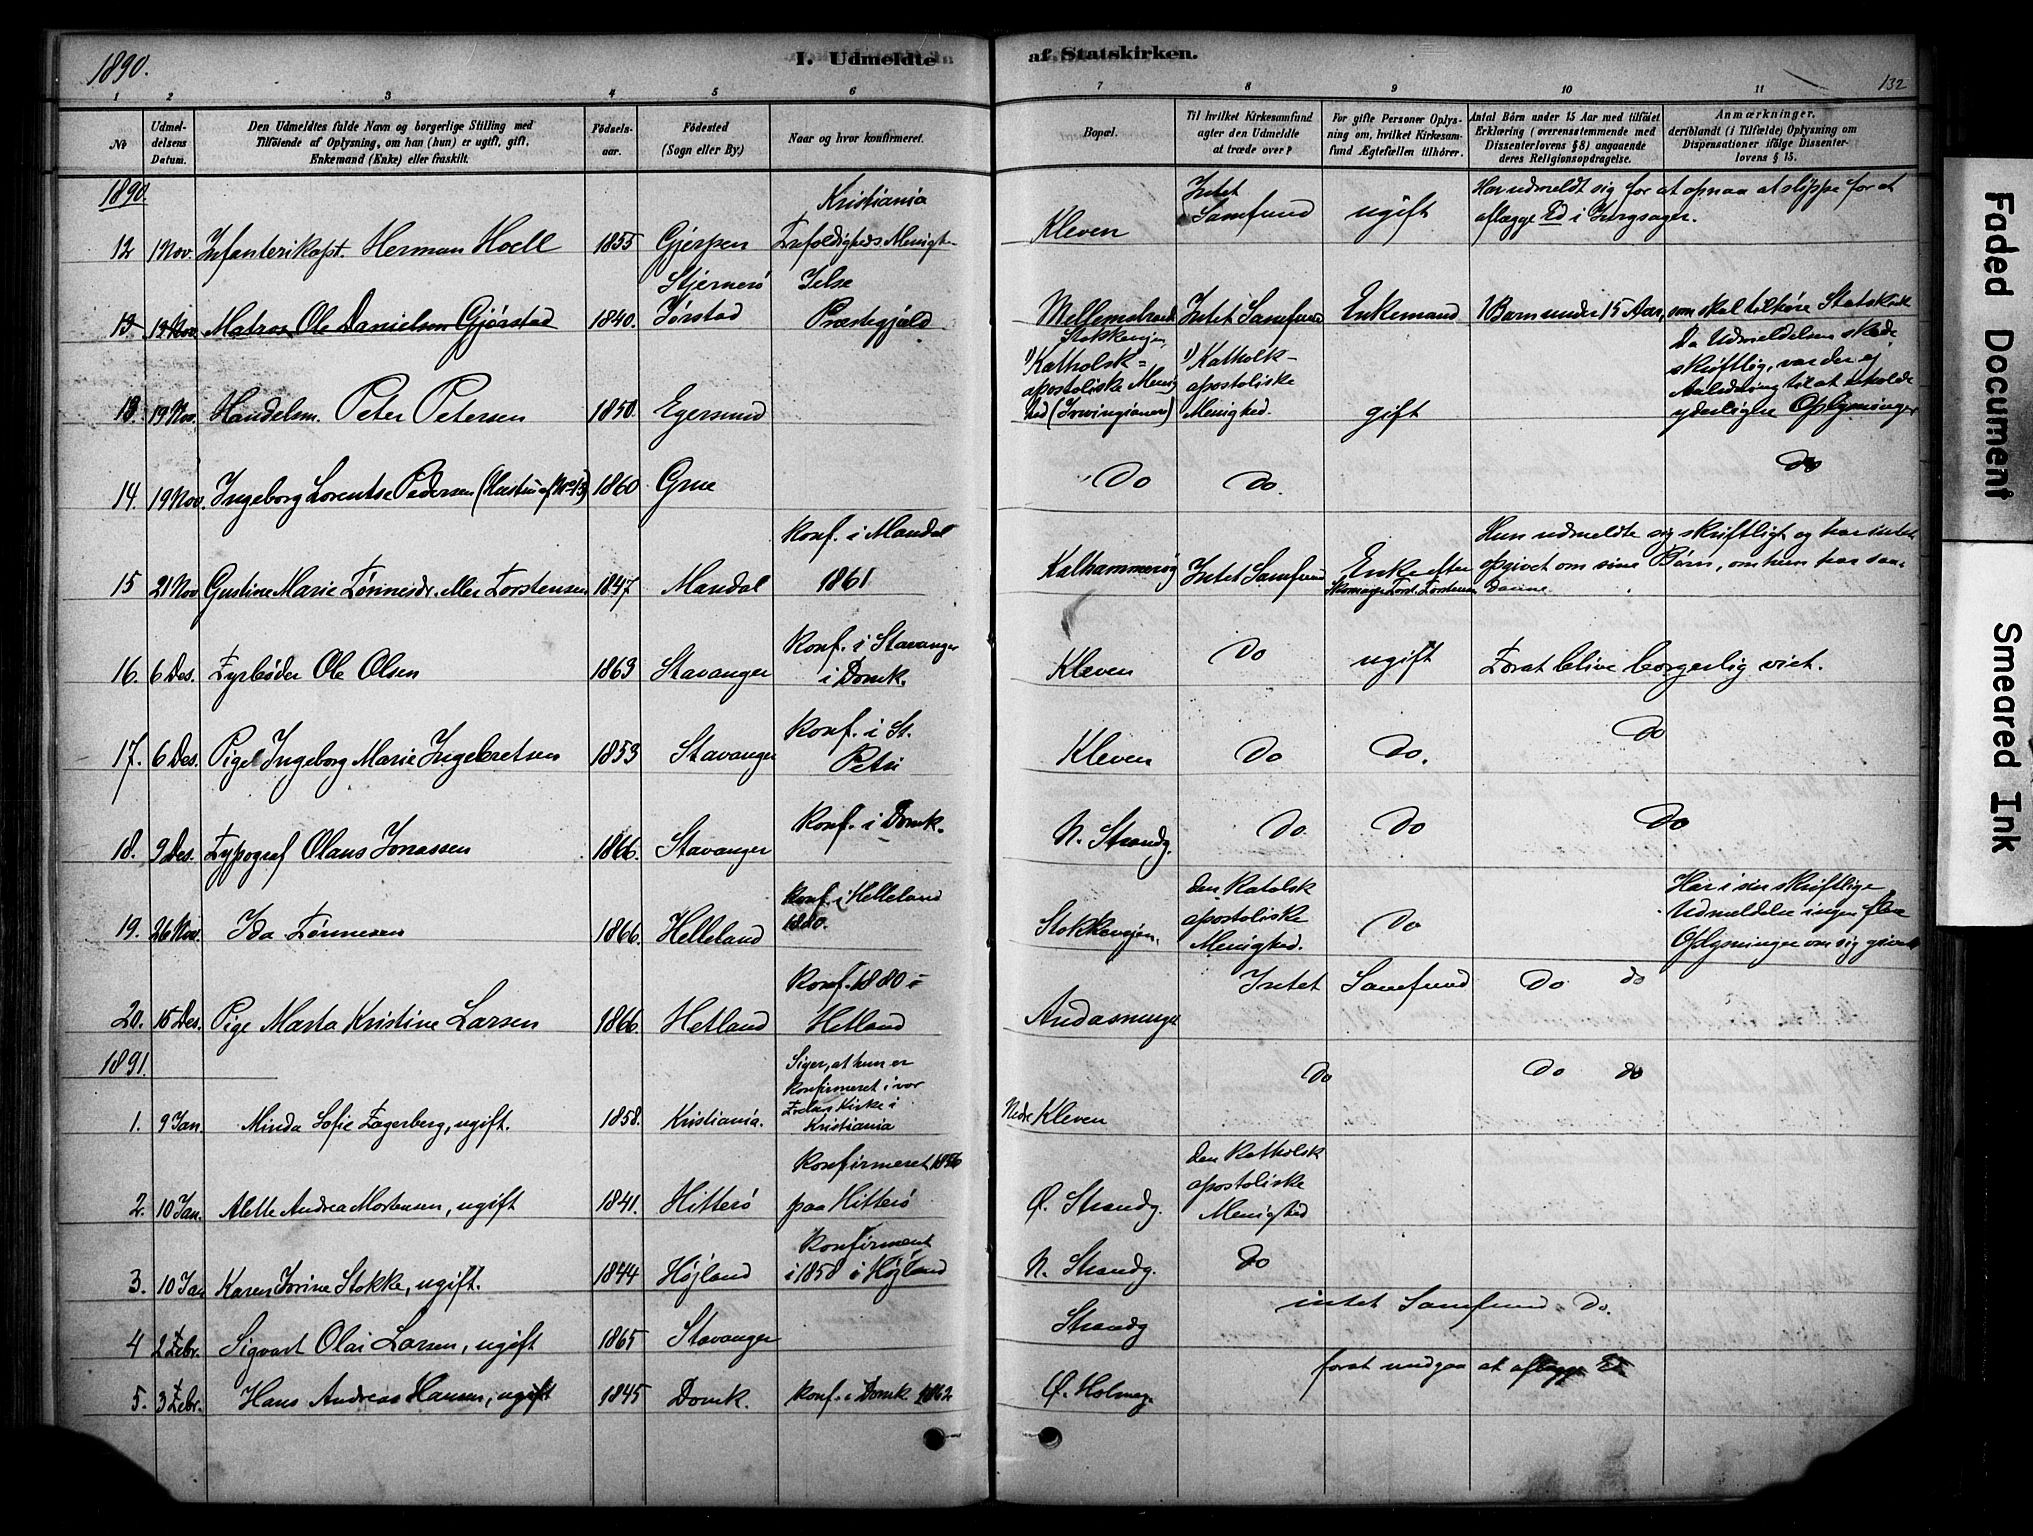 1890.
I. Udmeldte af Statskirken.
132
1 2 3 4 5 6 7 8 9 10 11
No
Udmel-
delsens
Datum.
Den Udmeldtes fulde Navn og borgerlige Stilling med
Tilföiende af Oplysning, om han (hun) er ugift, gift,
Enkemand (Enke) eller fraskilt.
Födsels-
aar.
Födested
(Sogn eller By.)
Naar og hvor konfirmeret.
Bopæl.
Til hvilket Kirkesamfund
agter den Udmeldte
at træde over?
For gifte Personer Oplys-
ning om, hvilket Kirkesam-
fund Ægtefællen tilhörer.
Antal Börn under 15 Aar med tilföiet
Erklæring (overensstemmende med
Dissenterlovens § 8) angaaende
deres Religionsopdragelse.
Anmærkninger,
deriblandt (i Tilfælde) Oplysning om
Dispensationer ifölge Dissenter-
lovens § 15.
1890.
12 1 Nov. Infanterikapt. Herman Hoell 1855 Gjerpen
Kristiania
Trefoldigheds Menigh.
Kleven
Intet
Samfund
ugift
Har udmeldt sig for at opnaa at slippe for at
aflægge Ed i
13 13 Nov. Matros Ole Danielsen Gjörstad 1840.
Stjernerö
Jörstad
Jelse
Præstegjæld
Intet Samfund Enkemand 1 Barn under 15 Aar, som skal tilhöre Statskirk
13. 19 Nov. Handelsm. Peter Petersen 1850. Egersund
Stokkevejen
1) Katholsk=
apostoliske Menig
hed (Irvingianere)
1) Katholk-
apostoliske
Menighed.
gift
Da Udmeldelsen skede
skriftlig, var der ej
Anledning til at erholde
yderligere Oplysninger
14. 19 Nov. Ingeborg Lorentse Pedersen (Hustru af No 13) 1860 Grue
Do Do. Do
15 21 Nov Gustine Marie Tönnesdr. eller Torstensen 1847 Mandal
Konf. i Mandal
1861
Kalhammervig Intet Samfund
Enke efter
Skomager Torst. Torstensen
Hun udmeldte sig skriftligt og har intet
opgivet om sine Börn, om hun har saa-
danne.
16. 6 Des. Fyrböder Ole Olsen 1863 Stavanger
Konf. i Stavanger
i Domk.
Kleven Do ugift For at blive borgerlig viet.
17. 6 Des. Pige Ingeborg Marie Ingebretsen 1853 Stavanger
Konf. i St.
Petri
Kleven Do Do. Do
18. 9 Des. Typograf Olaus Jonassen 1866. Stavanger Konf. i Domk. N. Strandg. Do Do Do
19. 26 Nov. Ida Tönnesen 1866. Helleland
Konf. i Helleland
1880.
Stokkevejen.
den Katolsk
apostoliske
Menighed.
Do
Har i sin skriftlige
Udmeldelse ingen flere
Oplysninger om sig givet
20. 15 Des. Pige Marta Kristine Larsen 1866. Hetland
Konf. 1880 i
Hetland
Intet Samfund Do do
1891
1. 9 Jan. Minda Sofie Fagerberg, ugift. 1858. Kristiania.
Siger, at hun er
Konfirmeret i vor
Frelsers Kirke i
Kristiania
Nedre Kleven Do Do do
2. 10 Jan. Alette Andrea Mortensen, ugift 1841. Hitterö
Konfirmeret 1856
paa Hitterö
Ø. Strandg.
den Katholsk
apostoliske
Menighed
3. 10 Jan Karen Jorine Stokke, ugift. 1844 Højland
Konfirmeret
i 1858 i Højland
N. Strandg. Do
4 2 Febr. Sigvart Olai Larsen, ugift 1865 Stavanger Strandg intet Samfund Do.
5. 3 Febr. Hans Andreas Hansen, ugift 1845 Domk. Konf. i Domk 1862 Ø. Holmeg. for at undgaa at aflægge Ed
Faded Document
Smeared Ink